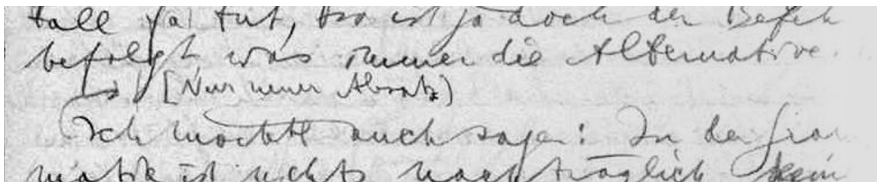 Fall ja tut, so ist ja doch der Befeh
befolgt was immer die Alternative.
[Nur neuer Absatz]
Ich möchte auch sagen: In der Gram
matik ist nichts nachträglich kein